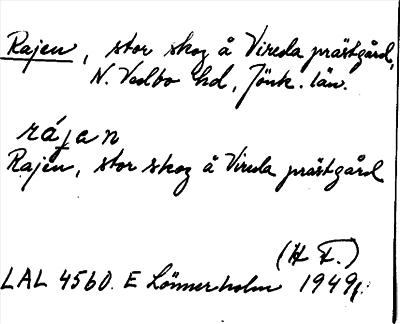 Rajen, stor skog å Vireda prästgård,
N. Vedbo hd, Jönk. län.
rájan
Rajen, stor skog å Vireda prästgård
(H F.)
LAL 4560. E Lönnerholm 1949.